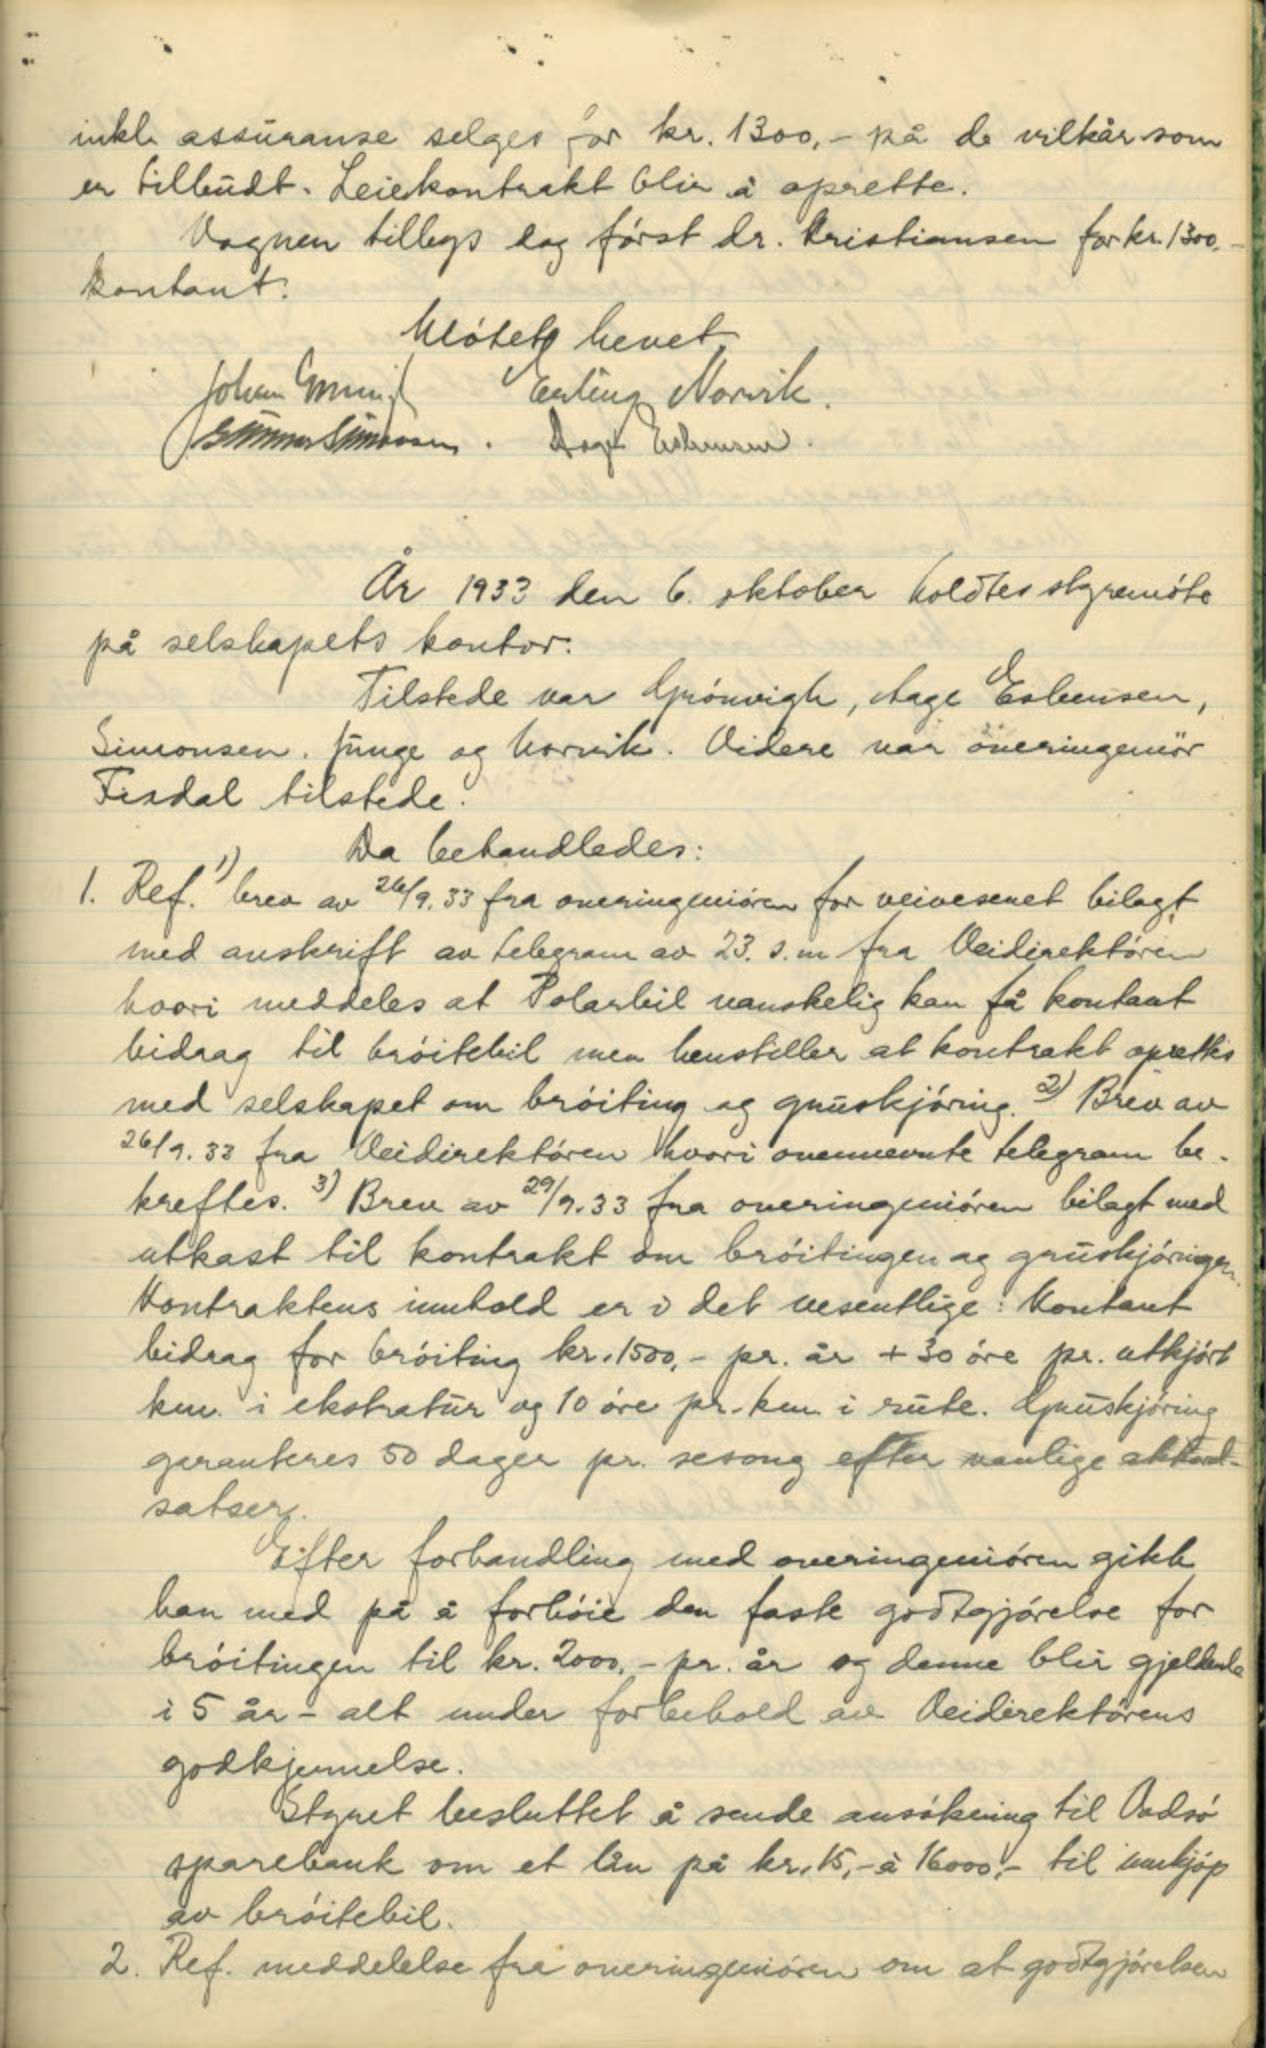 inkl. assuranse selges for kr. 1300,- på de vilkår som
er tilbudt. Leiekontrakt blir å oprette.
Vognen tilbys dog först dr. Kristiansen for kr. 1300,-
kontant.
Mötet hevet
Erling Norvik.
Gunnar Simonsen. Aage Esbensen.
År 1933 den 6. oktober holdtes styremöte
på selskapets kontor.
Tilstede var Grönvigh, Aage Esbensen,
Simonsen, Junge og Norvik. Videre var overingeniör
Fixdal tilstede.
Da behandledes:
1. Ref. 1) brev av 26/9.33 fra overingeniören for veivesenet bilagt
med avskrift av telegram av 23. s.m fra Veidirektören
hvori meddeles at Polarbil vanskelig kan få kontant
bidrag til bröitebil men henstiller at kontrakt oprettes
med selskapet om bröiting og gruskjöring. 2) Brev av
26/9.33 fra Veidirektören hvori ovennevnte telegram be-
kreftes. 3) Brev av 29/9.33 fra overingeniören bilagt med
utkast til kontrakt om bröitingen og gruskjöringen.
Kontraktens innhold er i det vesentlige: Kontant
bidrag for bröiting kr. 1500,- pr. år + 30 öre pr. utkjört
km. i ekstratur og 10 öre pr. km. i rute. Gruskjöring
garanteres 50 dager pr. sesong efter vanlige akkord-
satser.
Efter forhandling med overingeniören gikk
han med på å forhöie den faste godtgjörelse for
bröitingen til kr. 2000,- pr. år og denne blir gjeldende
i 5 år - alt under forbehold av Veidirektörens
godkjennelse.
Styret besluttet å sende ansökning til Vadsö
sparebank om et lån på kr. 15,- à 16000,- til innkjöp
av bröitebil.
2. Ref. meddelelse fra overingeniören om at godtgjörelsen